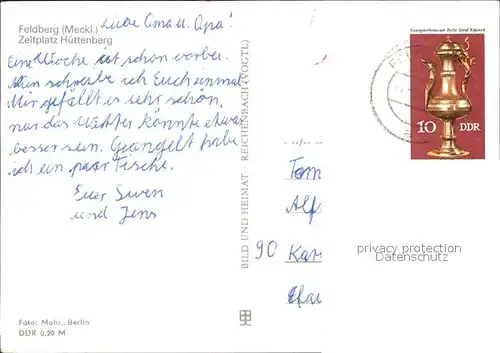 Feldberg (Meckl.)
Zeltplatz Hüttenberg
Liebe Oma u. Opa!
Eine Woche ist schon vorbei.
Nun schreibe ich Euch einmal.
Mir gefällt es sehr schön,
nur das Wetter könnte etwas
besser sein. Geangelt habe
ich ein paar Fische.
Euer Swen
und Jens
Foto: Mohr, Berlin
DDR 0,20 M
BILD UND HEIMAT · REICHENBACH (VOGTL)
Kunstgewerbemuseum Berlin Schloß Köpenick
10 DDR
Tam
Alf
90 Kar
privacy protection
Datenschutz